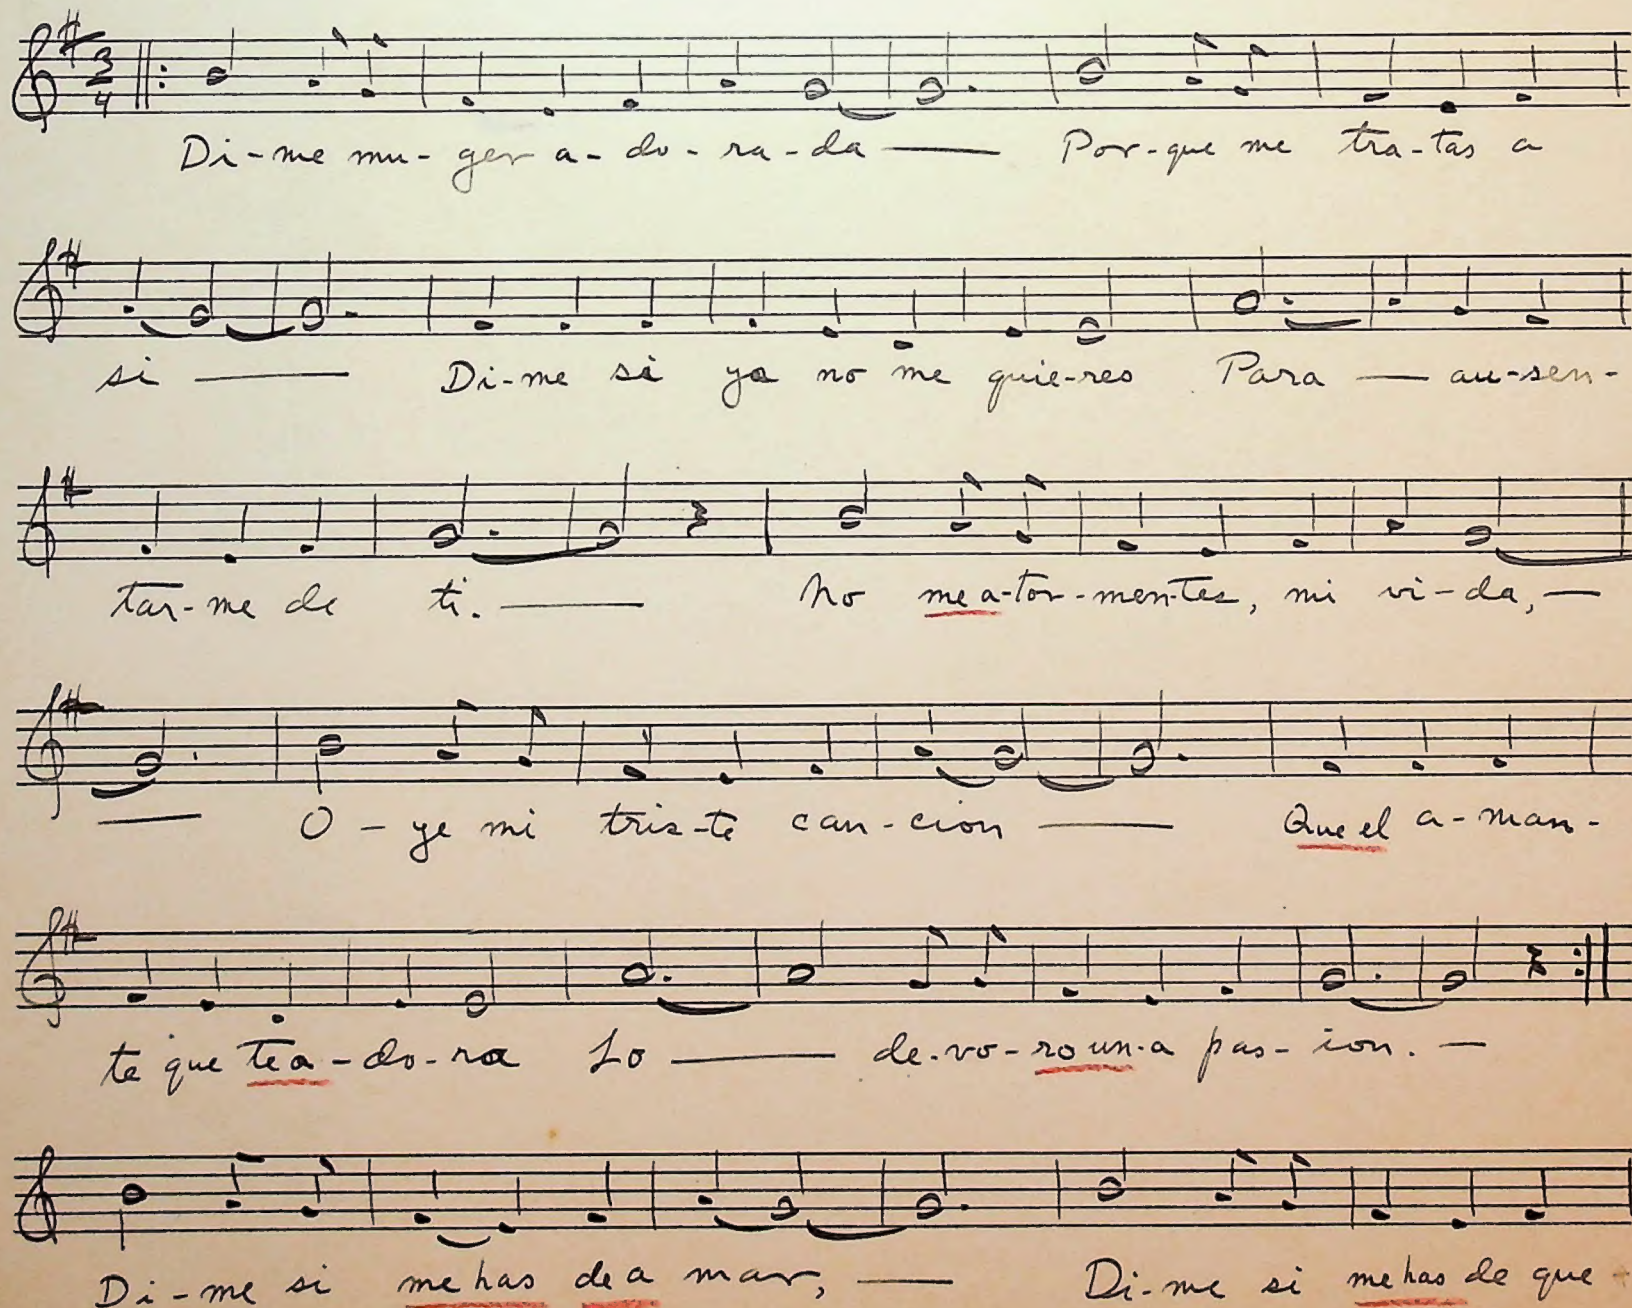 3
4
Di-me mu-ger a-do-ra-da — Por-que me tra-tas a
si — Di-me si ya no me quie-res Para — au-sen-
tar-me de ti. — No me a-tor-men-tes, mi vi-da, —
— O-ye mi tris-te can-cion — Que el a-man-
te que te a-do-ra Lo — de-vo-ro un-a pas-ion. —
Di-me si me has de a mar, — Di-me si me has de que